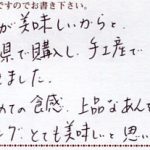 ですのでお書き下さい。
が美味しいからと、
県で購入し、手土産で
きました。
めての食感、上品なあん
とても美味しいと思い